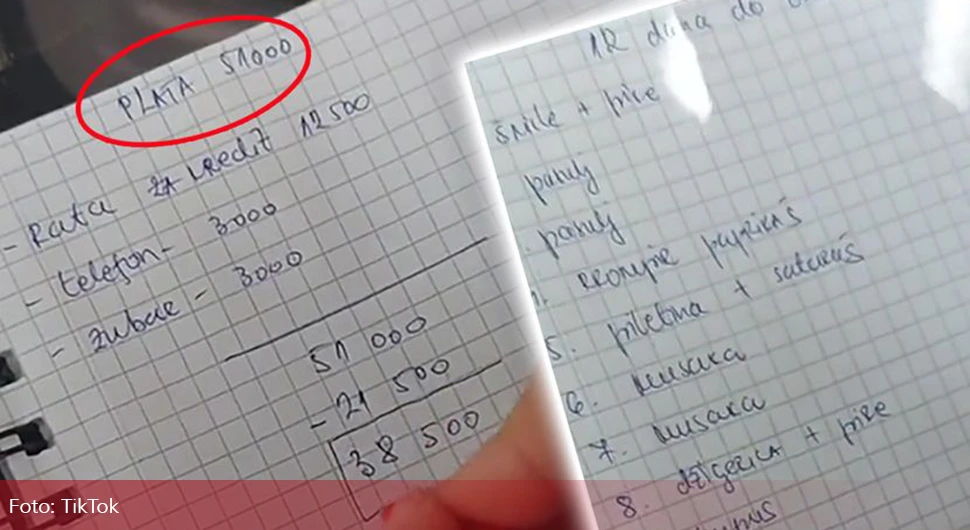 PLATA 51000
- Rata za kredit 12500
- telefon - 3000
- zubar - 3000
51 000
- 21 500
38 500
12 dana do
šnicle + pire
pasulj
pasulj
krompir paprikaš
5. piletina + sataraš
6. musaka
7. musaka
8. džigerica + pire
Foto: TikTok